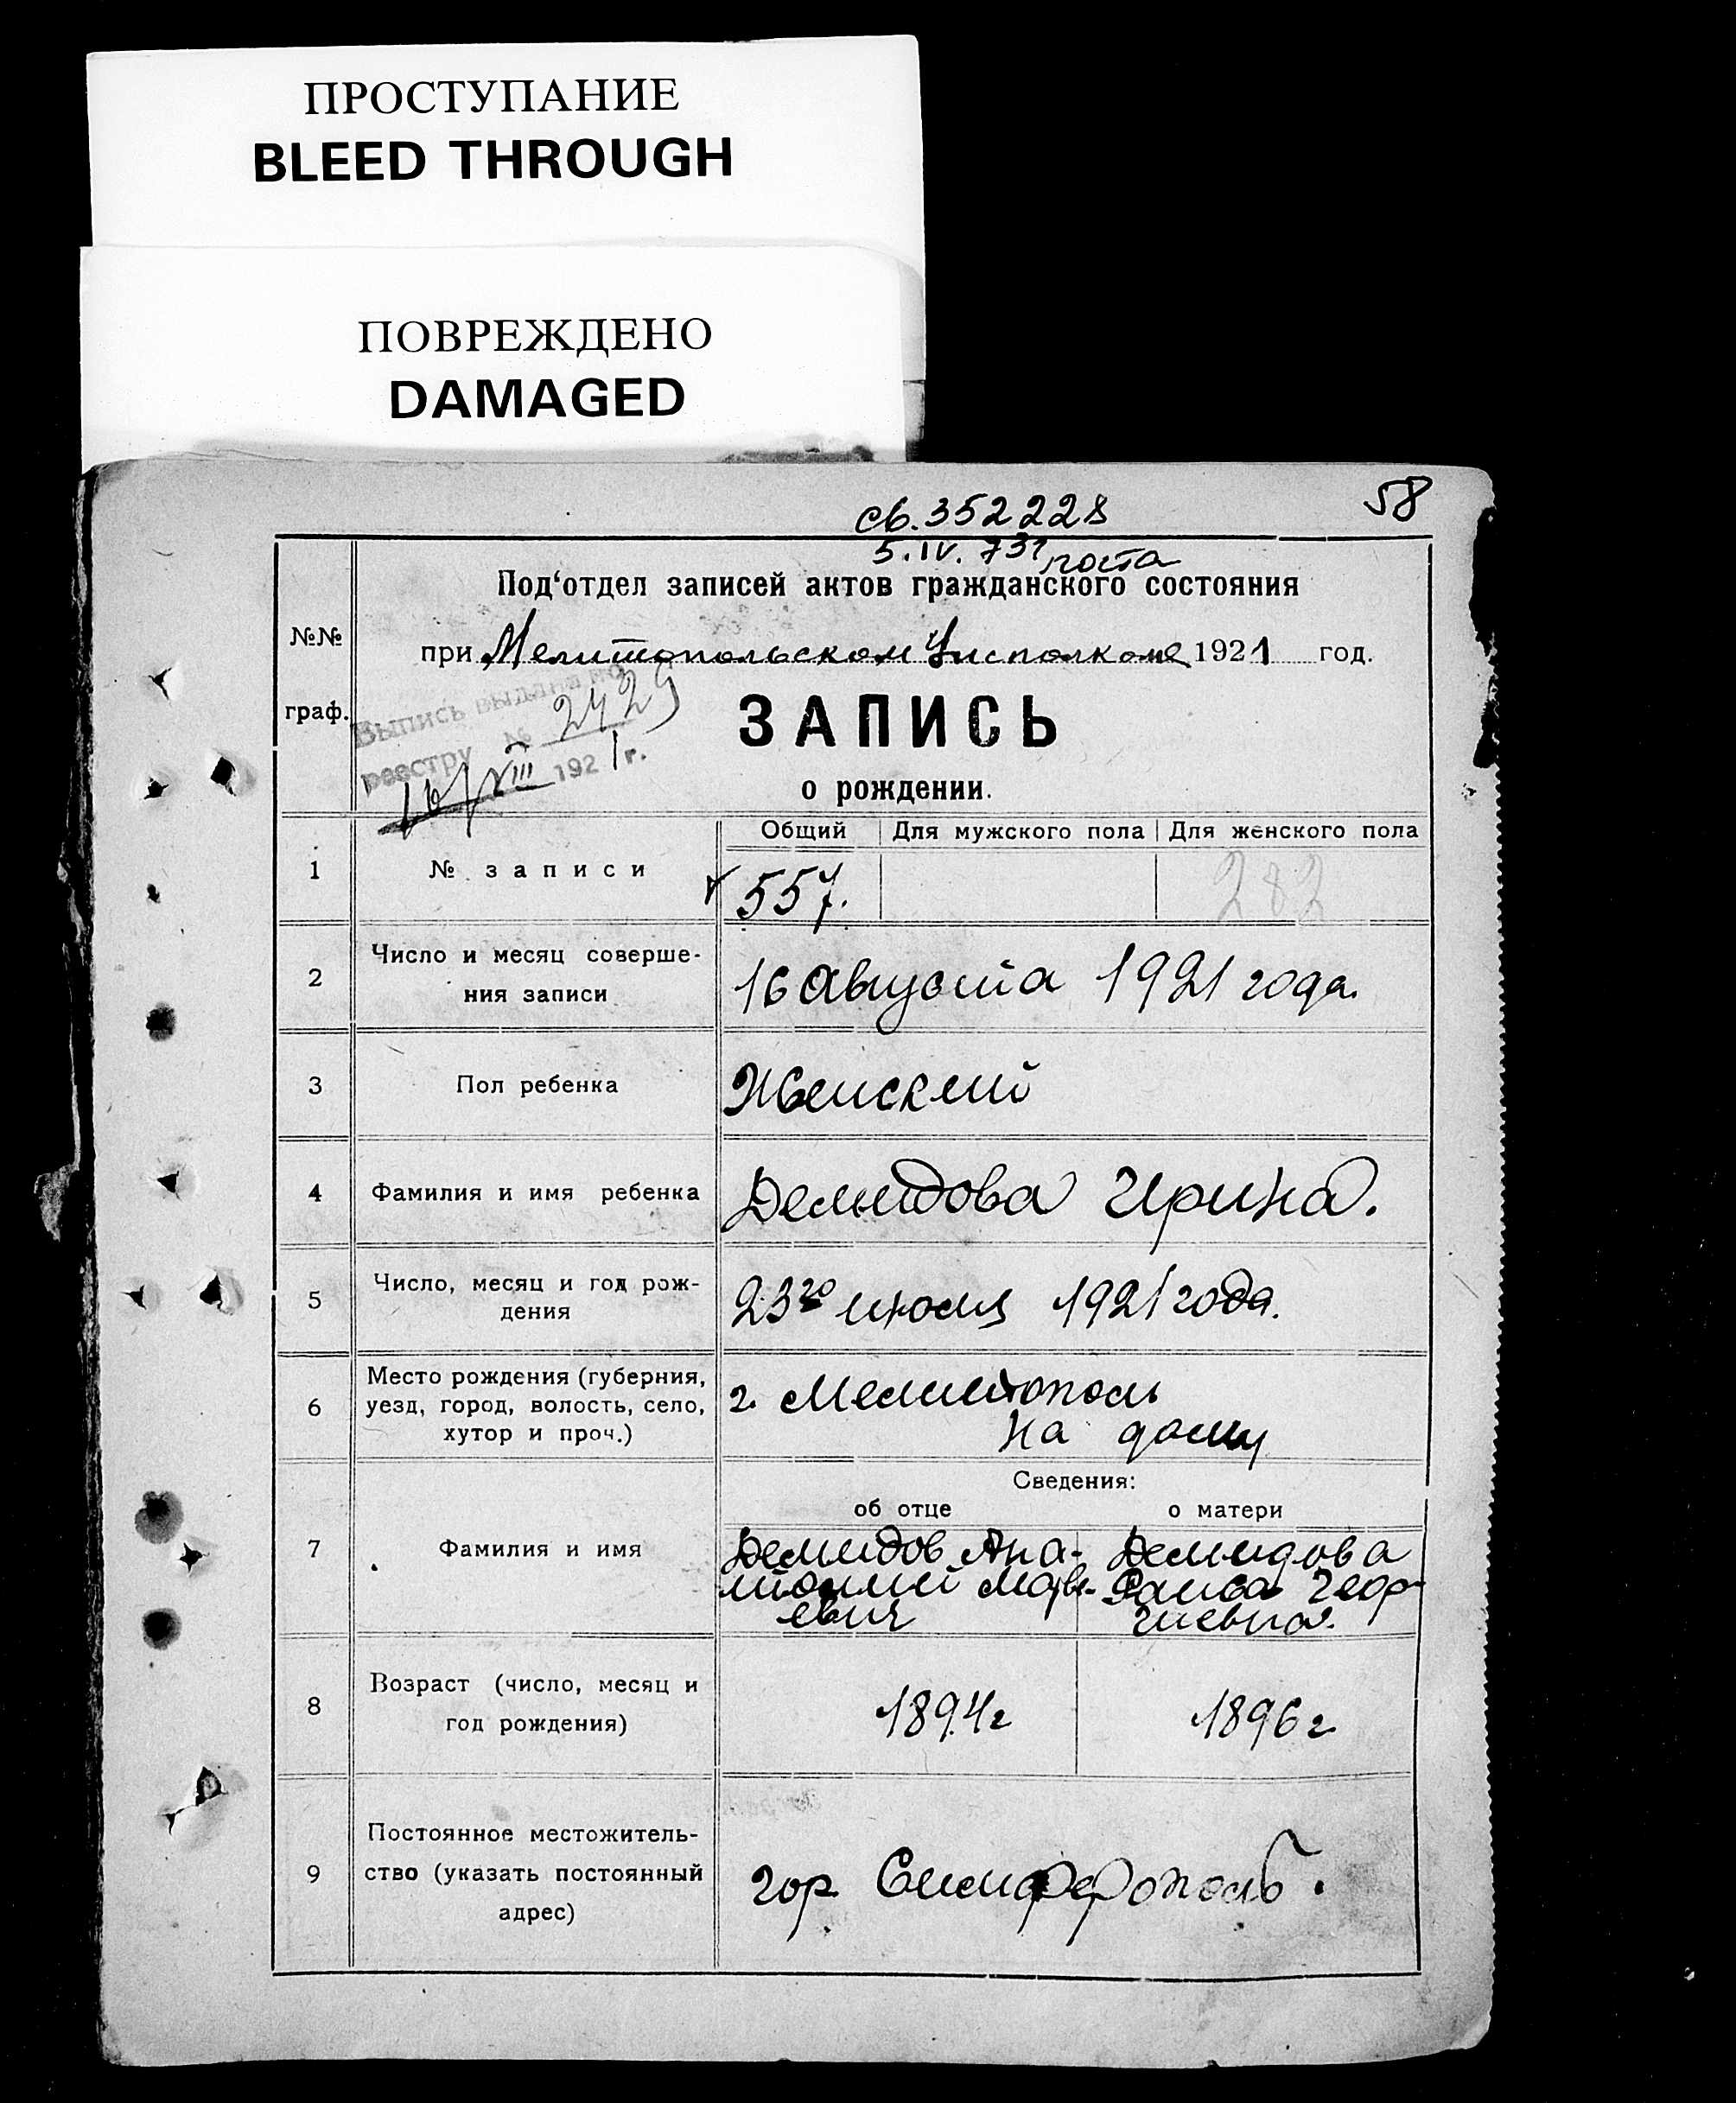 ПРОСТУПАНИЕ
BLEED THROUGH
ПОВРЕЖДЕНО
DAMAGED
58
св. 352228
5.IV.73г почта
Под‘отдел записей актов гражданского состояния
при Мелитопольском Уисполкоме 1921 год.
№№
граф.
Выпись выдана по
реестру № 2429
16/VIII 1921 г.
ЗАПИСЬ
о рождении.
Общий Для мужского пола Для женского пола
1 № записи 557. 282
2 Число и месяц соверше-
ния записи
16 Августа 1921 года.
3 Пол ребенка Женский
4 Фамилия и имя ребенка Демидова Ирина.
5 Число, месяц и год рож-
дения
23го июля 1921 года.
6 Место рождения (губерния,
уезд, город, волость, село,
хутор и проч.)
г. Мелитополь
на дому
Сведения:
об отце о матери
7 Фамилия и имя
Демидов Ана-
толий
евич
Демидова
Раиса Геор-
гиевна.
8 Возраст (число, месяц и
год рождения)
1894г 1896г
9 Постоянное местожитель-
ство (указать постоянный
адрес)
гор. Симферополь.